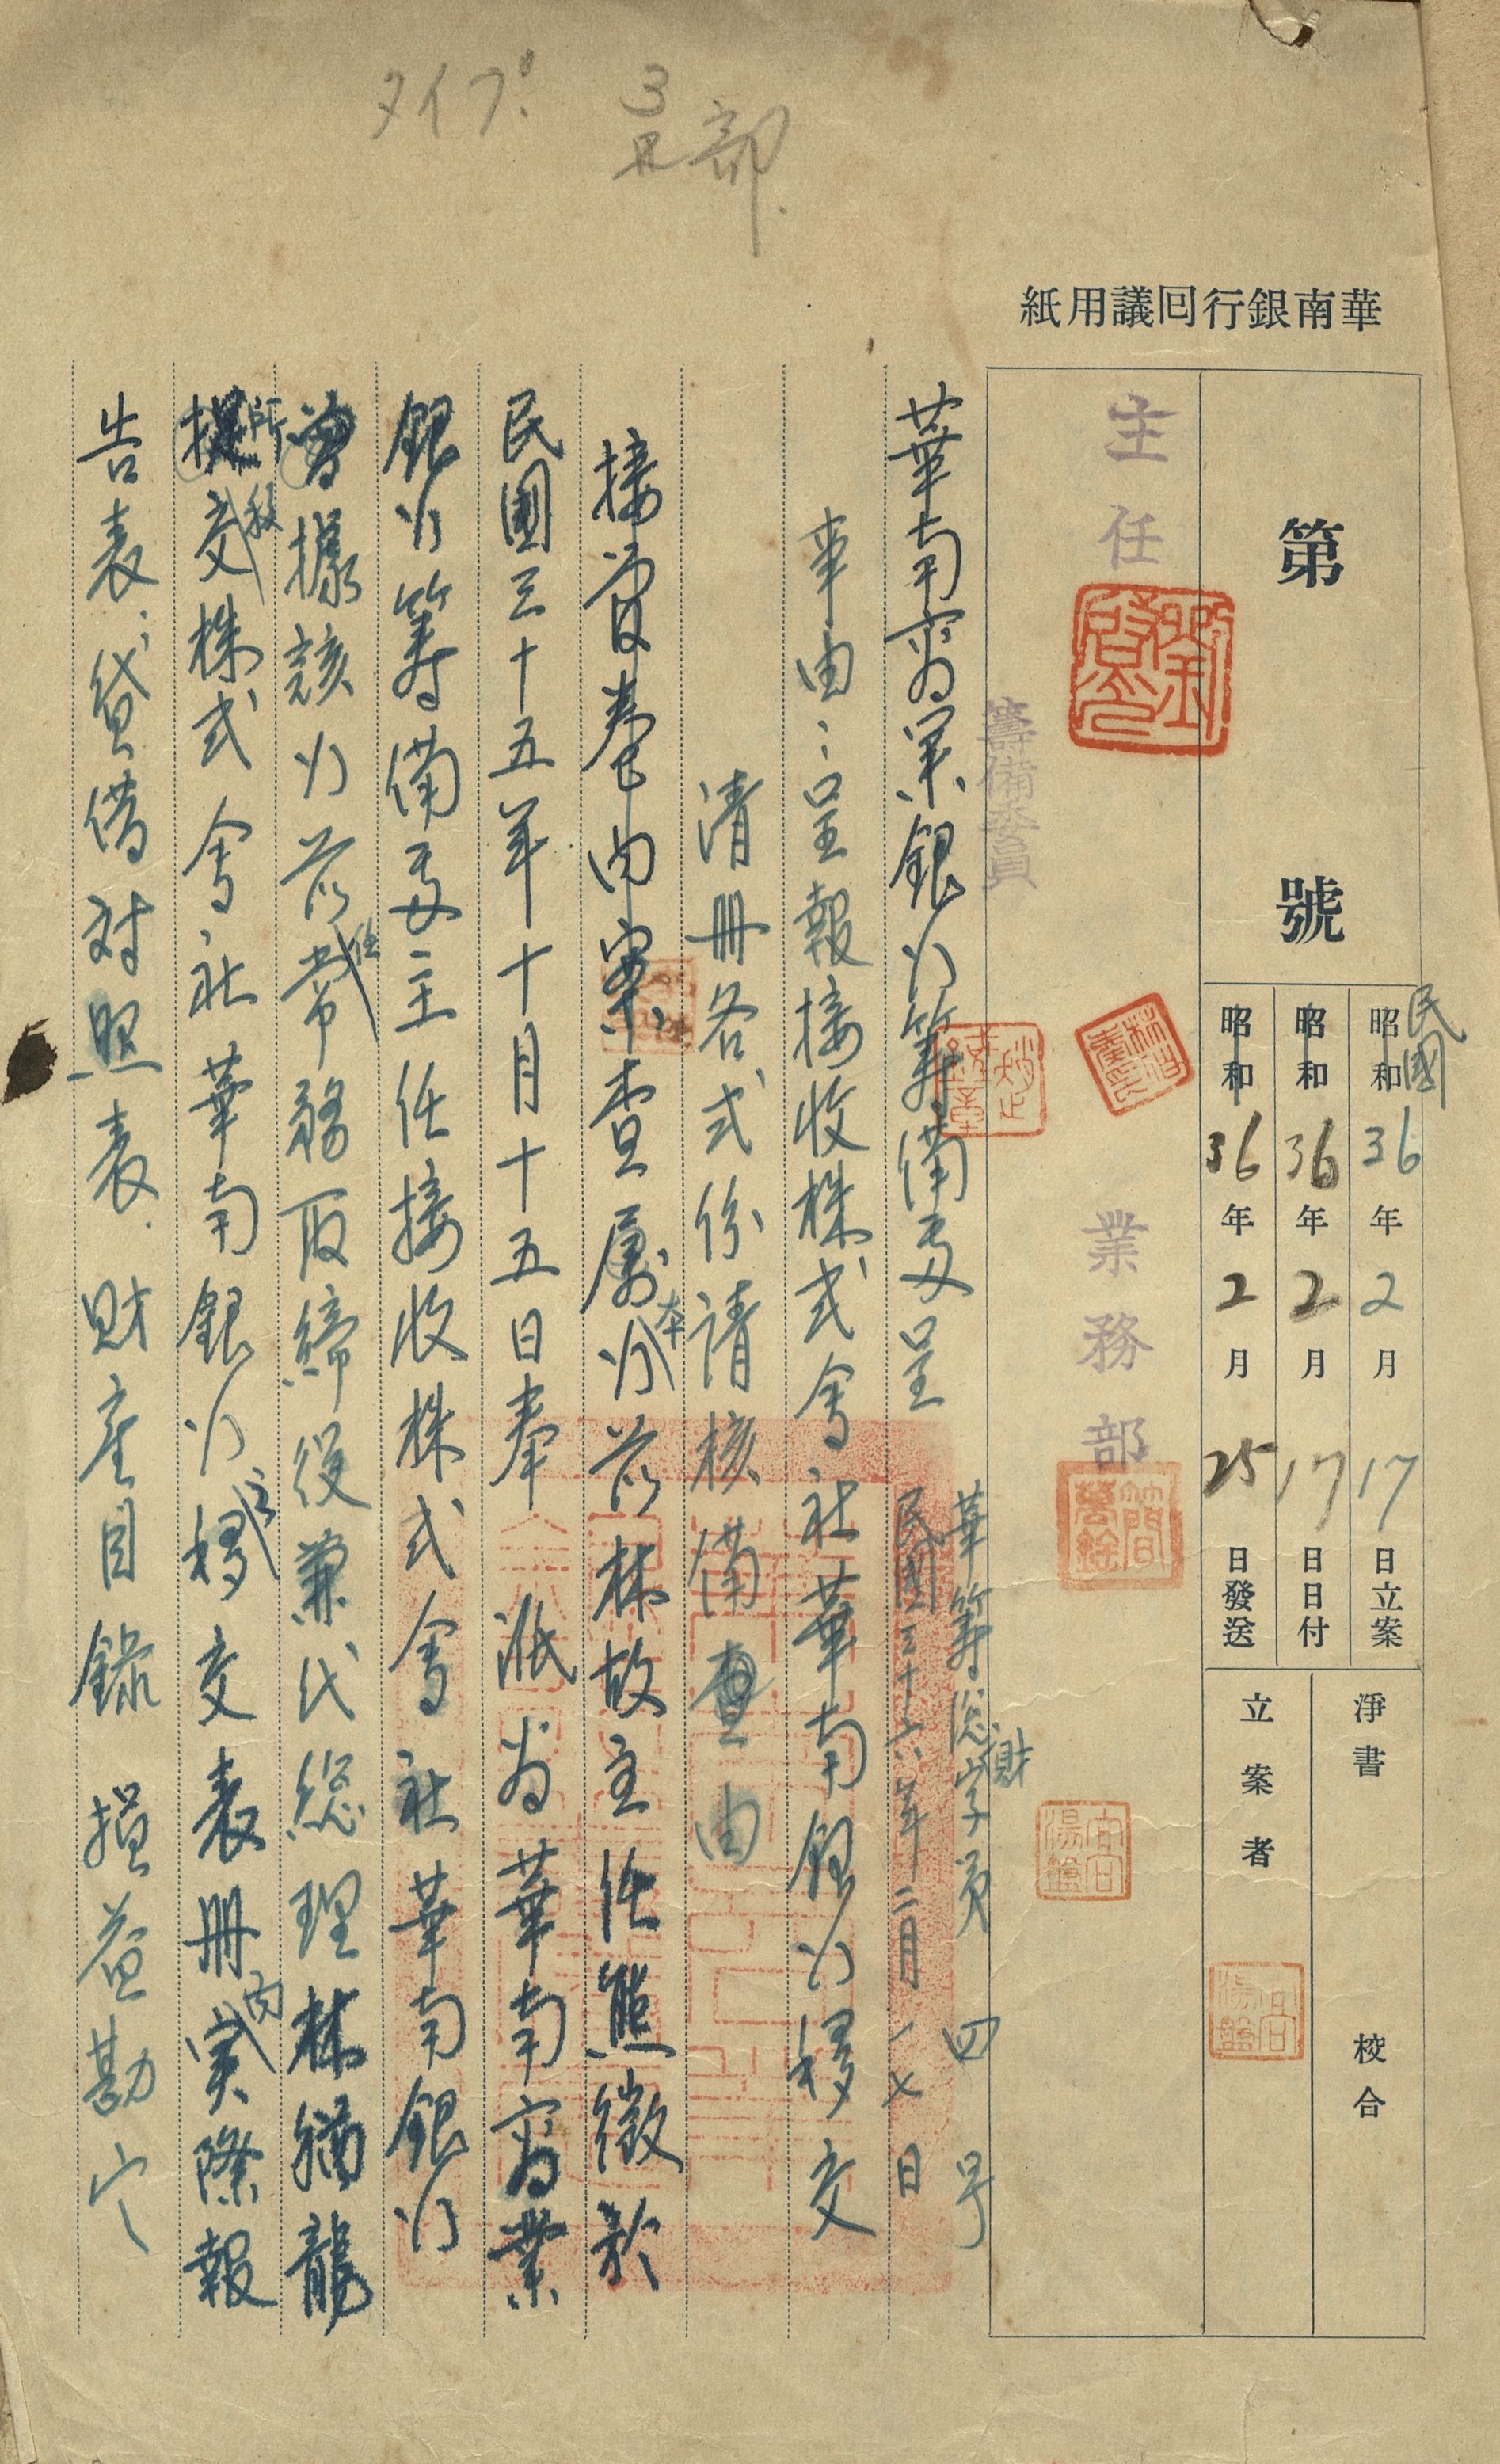 タイプ 3 部
華南銀行囘議用紙
第 號
民國
昭和36年2月17日立案
昭和36年2月17日日付
昭和36年2月25日發送
淨書 校合
立案者
主任
業務部
籌備委員
華籌總字財第四号
民國三十六年二月一七日
華南商業銀行籌備處呈
事由：呈報接收株式會社華南銀行移交
清冊各式份請核備查由
接管卷內案查屬行本前林故主任熊徵於
民國三十五年十月十五日奉 派為華南商業
銀行籌備處主任接收株式會社華南銀行
曾據該行前常任務取締役兼代總理林猶龍
所移交株式會社華南銀行之移交表冊內実際報
告表．貸借対照表．財產目錄 損益勘定